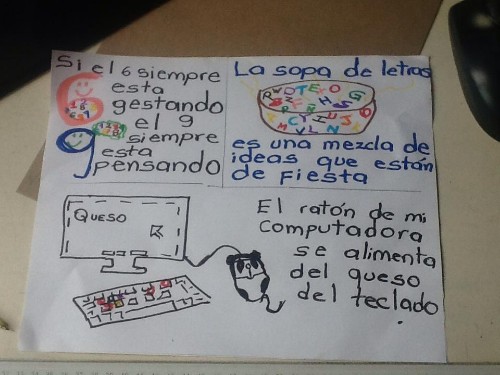 Si el 6 siempre
esta
gestando
el 9
siempre
esta
pensando
La sopa de letras
es una mezcla de
ideas que están
de fiesta
QUESO
El ratón de mi
computadora
se alimenta
del queso
del teclado